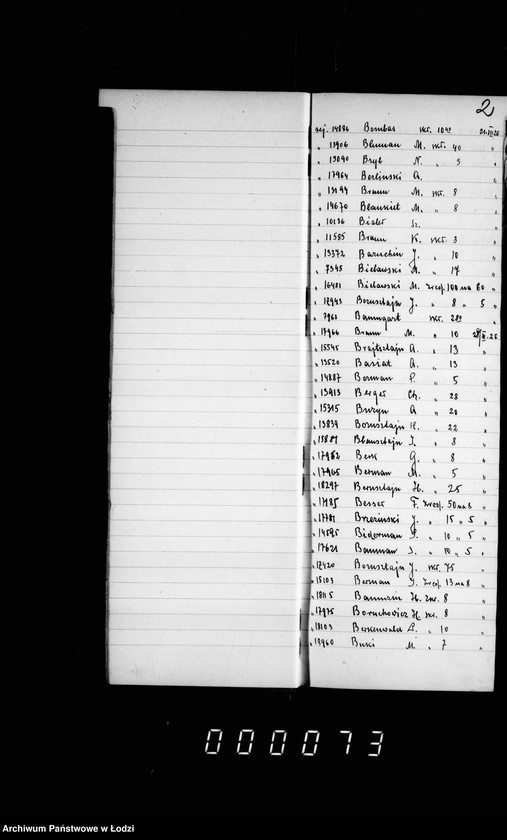 2
rej. 14886 Bombas skr. 21.III.26
" 13906 Bluman M. skr. 40 "
" 13090 Bryl N. " 5 "
" 17964 Berliński A. "
" 13194 Braun M. skr. 8 "
" 14670 Blaukiet M. " 8 "
" 10136 Bialer "
" 11585 Braun K. skr. 3 "
" 13372 Baruchin J. " 10 "
" 7345 Bielawski M. " 17 "
" 16481 Bielawski M. zresp. 100 na 60 "
" 12943 Bornsztajn J. " 8 " 5 "
" 7963 Baumgart skr.
" 17966 Braun M. " 10
" 15545 Brajtsztajn A. " 13 "
" 13520 Basiat A. " 13 "
" 14887 Berman P. " 5 "
" 13913 Berger Ch. " 28 "
" Buzyn A " 20 "
" 13839 Bornsztajn H. " 22 "
" Blausztajn I. " 8 "
" Berk G. " 8 "
" 17965 Berman M. " 5 "
" 18297 Bernsztajn H. " 25 "
" 17185 Besser F. zresp. 50 na 8 "
" Brzeziński J. " 15 " 5 "
" 14595 Biderman " 10 " 5 "
" 17621 Bauman S. " 10 " 5 "
" 12420 Bornsztajn J. skr. 75 "
" 15103 Berman zresp. 13 na 8 "
" 18115 Baumzin H. skr. 8 "
" 17975 Boruchowicz H. skr. 8 "
" 18103 Berkenwald L. " 10 "
" 18960 Buski M. " 7 "
000073
Archiwum Państwowe w Łodzi